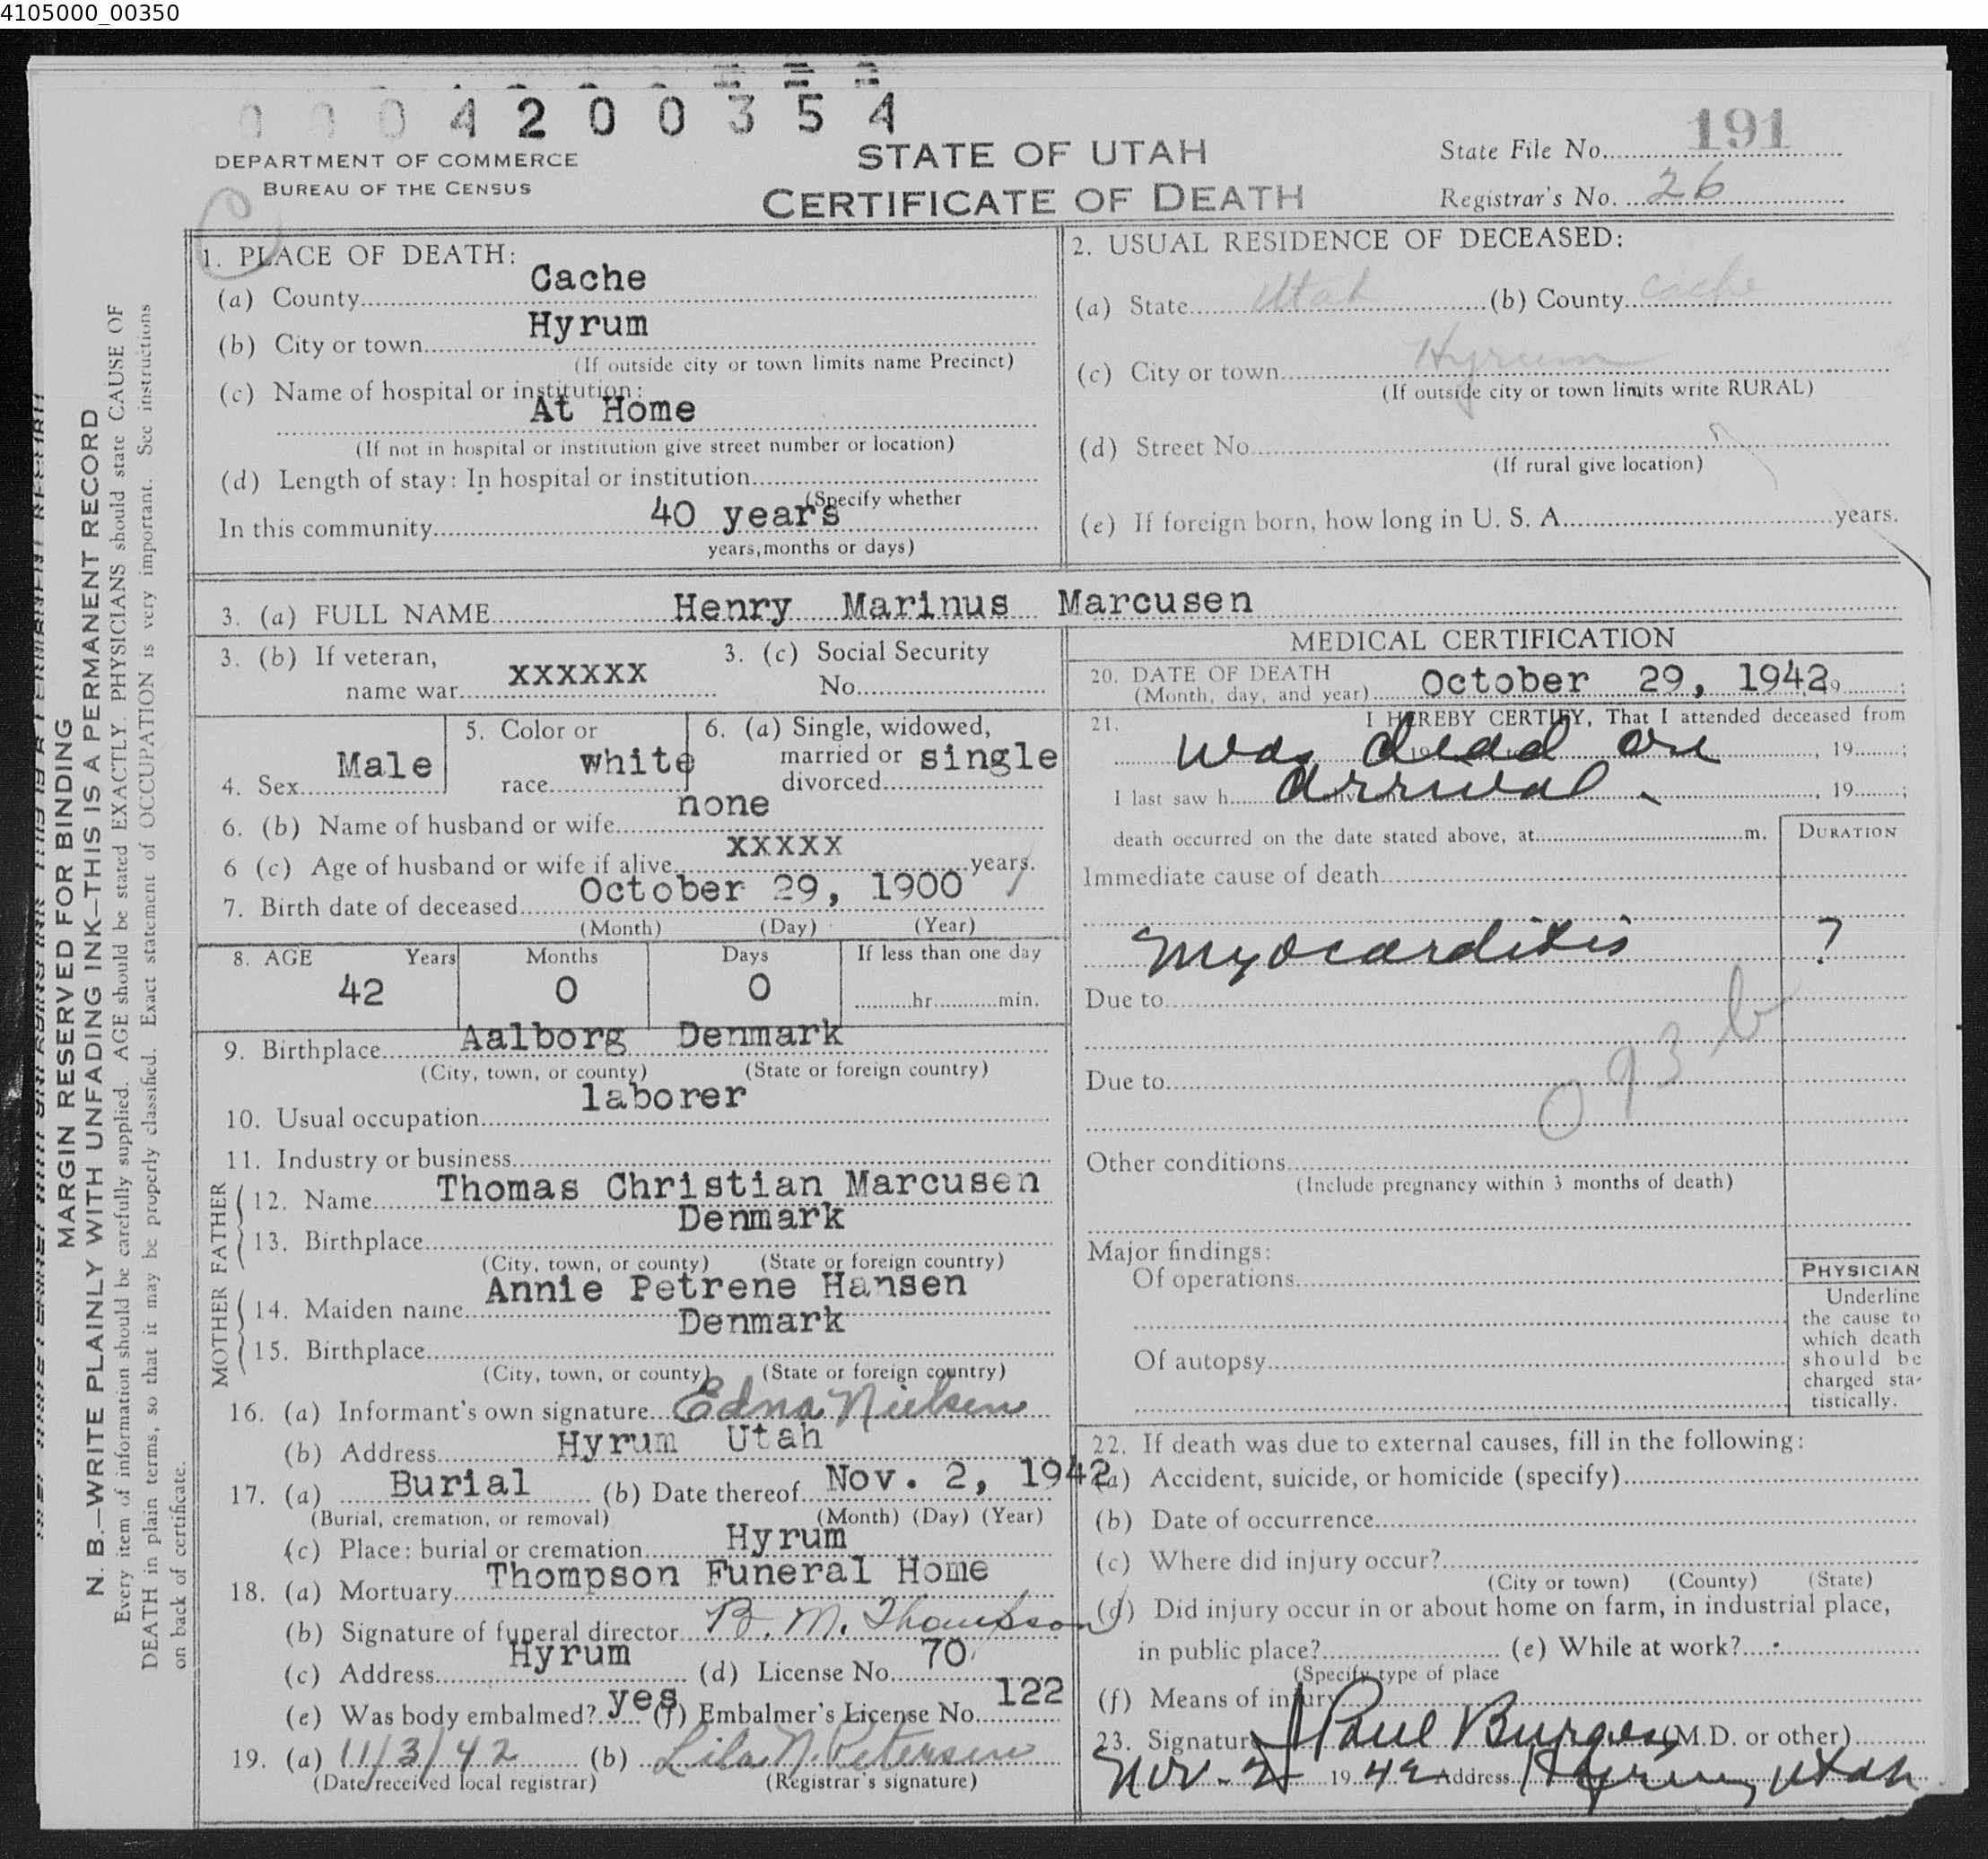 4105000_00350
0004200354
DEPARTMENT OF COMMERCE
BUREAU OF THE CENSUS
STATE OF UTAH
CERTIFICATE OF DEATH
State File No. 191
Registrar's No. 26
C
MARGIN RESERVED FOR BINDING
N. B.—WRITE PLAINLY WITH UNFADING INK—THIS IS A PERMANENT RECORD
Every item of information should be carefully supplied. AGE should be stated EXACTLY. PHYSICIANS should state CAUSE OF
DEATH in plain terms, so that it may be properly classified. Exact statement of OCCUPATION is very important. See instructions
on back of certificate.
1. PLACE OF DEATH:
(a) County Cache
(b) City or town Hyrum
(If outside city or town limits name Precinct)
(c) Name of hospital or institution:
At Home
(If not in hospital or institution give street number or location)
(d) Length of stay: In hospital or institution
(Specify whether
In this community 40 years
years, months or days)
2. USUAL RESIDENCE OF DECEASED:
(a) State Utah (b) County Cache
(c) City or town Hyrum
(If outside city or town limits write RURAL)
(d) Street No.
(If rural give location)
(e) If foreign born, how long in U. S. A. years.
3. (a) FULL NAME Henry Marinus Marcusen
3. (b) If veteran,
name war xxxxxx
3. (c) Social Security
No.
4. Sex Male
5. Color or
race white
6. (a) Single, widowed,
married or
divorced single
6. (b) Name of husband or wife none
6 (c) Age of husband or wife if alive xxxxx years.
7. Birth date of deceased October 29, 1900
(Month) (Day) (Year)
8. AGE Years Months Days If less than one day
42 0 0 hr. min.
9. Birthplace Aalborg Denmark
(City, town, or county) (State or foreign country)
10. Usual occupation laborer
11. Industry or business
FATHER
12. Name Thomas Christian Marcusen
13. Birthplace Denmark
(City, town, or county) (State or foreign country)
MOTHER
14. Maiden name Annie Petrene Hansen
15. Birthplace Denmark
(City, town, or county) (State or foreign country)
16. (a) Informant's own signature Edna Nielsen
(b) Address Hyrum Utah
17. (a) Burial (b) Date thereof Nov. 2, 1942
(Burial, cremation, or removal) (Month) (Day) (Year)
(c) Place: burial or cremation Hyrum
18. (a) Mortuary Thompson Funeral Home
(b) Signature of funeral director B. M. Thompson
(c) Address Hyrum (d) License No. 70
(e) Was body embalmed? yes (f) Embalmer's License No. 122
19. (a) 11/3/42 (b) Lila N. Petersen
(Date received local registrar) (Registrar's signature)
MEDICAL CERTIFICATION
20. DATE OF DEATH
(Month, day, and year) October 29, 1942 19 ;
21. I HEREBY CERTIFY, That I attended deceased from
was dead on , 19 ;
I last saw h arrival. , 19 ;
death occurred on the date stated above, at m.
DURATION
Immediate cause of death
Myocarditis ?
Due to
093b
Due to
Other conditions
(Include pregnancy within 3 months of death)
Major findings:
Of operations
Of autopsy
PHYSICIAN
Underline
the cause to
which death
should be
charged sta-
tistically.
22. If death was due to external causes, fill in the following:
(a) Accident, suicide, or homicide (specify)
(b) Date of occurrence
(c) Where did injury occur?
(City or town) (County) (State)
(d) Did injury occur in or about home on farm, in industrial place,
in public place? (e) While at work?
(Specify type of place
(f) Means of injury
23. Signature J Paul Burgess (M.D. or other)
Nov. 2 1942 Address Hyrum, Utah